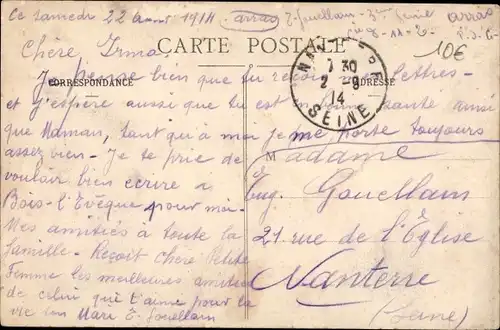 Ce Samedi 22 Aout 1914
arras
E. Gouellain - 3eme Génie arras
10€
CARTE POSTALE
CORRESPONDANCE
ADRESSE
NANTERRE
7 30
2 - 9
14
SEINE
Chère Irma
Je pense bien que tu reçois lettres -
et j'espère aussi que tu est en bonne santé ainsi
que Maman, tant qu'à moi je me porte toujours
assez bien - Je te prie de
vouloir bien ecrire a
Bois-l'Evêque pour moi -
Mes amitiés à toute la
famille - Reçoit Chère Petite
Femme les meilleures amitiés
de celui qui t'aime pour la
vie ton Mari E. Gouellain
Madame
Eug. Gouellain
21 rue de l'Eglise
Nanterre
(Seine)